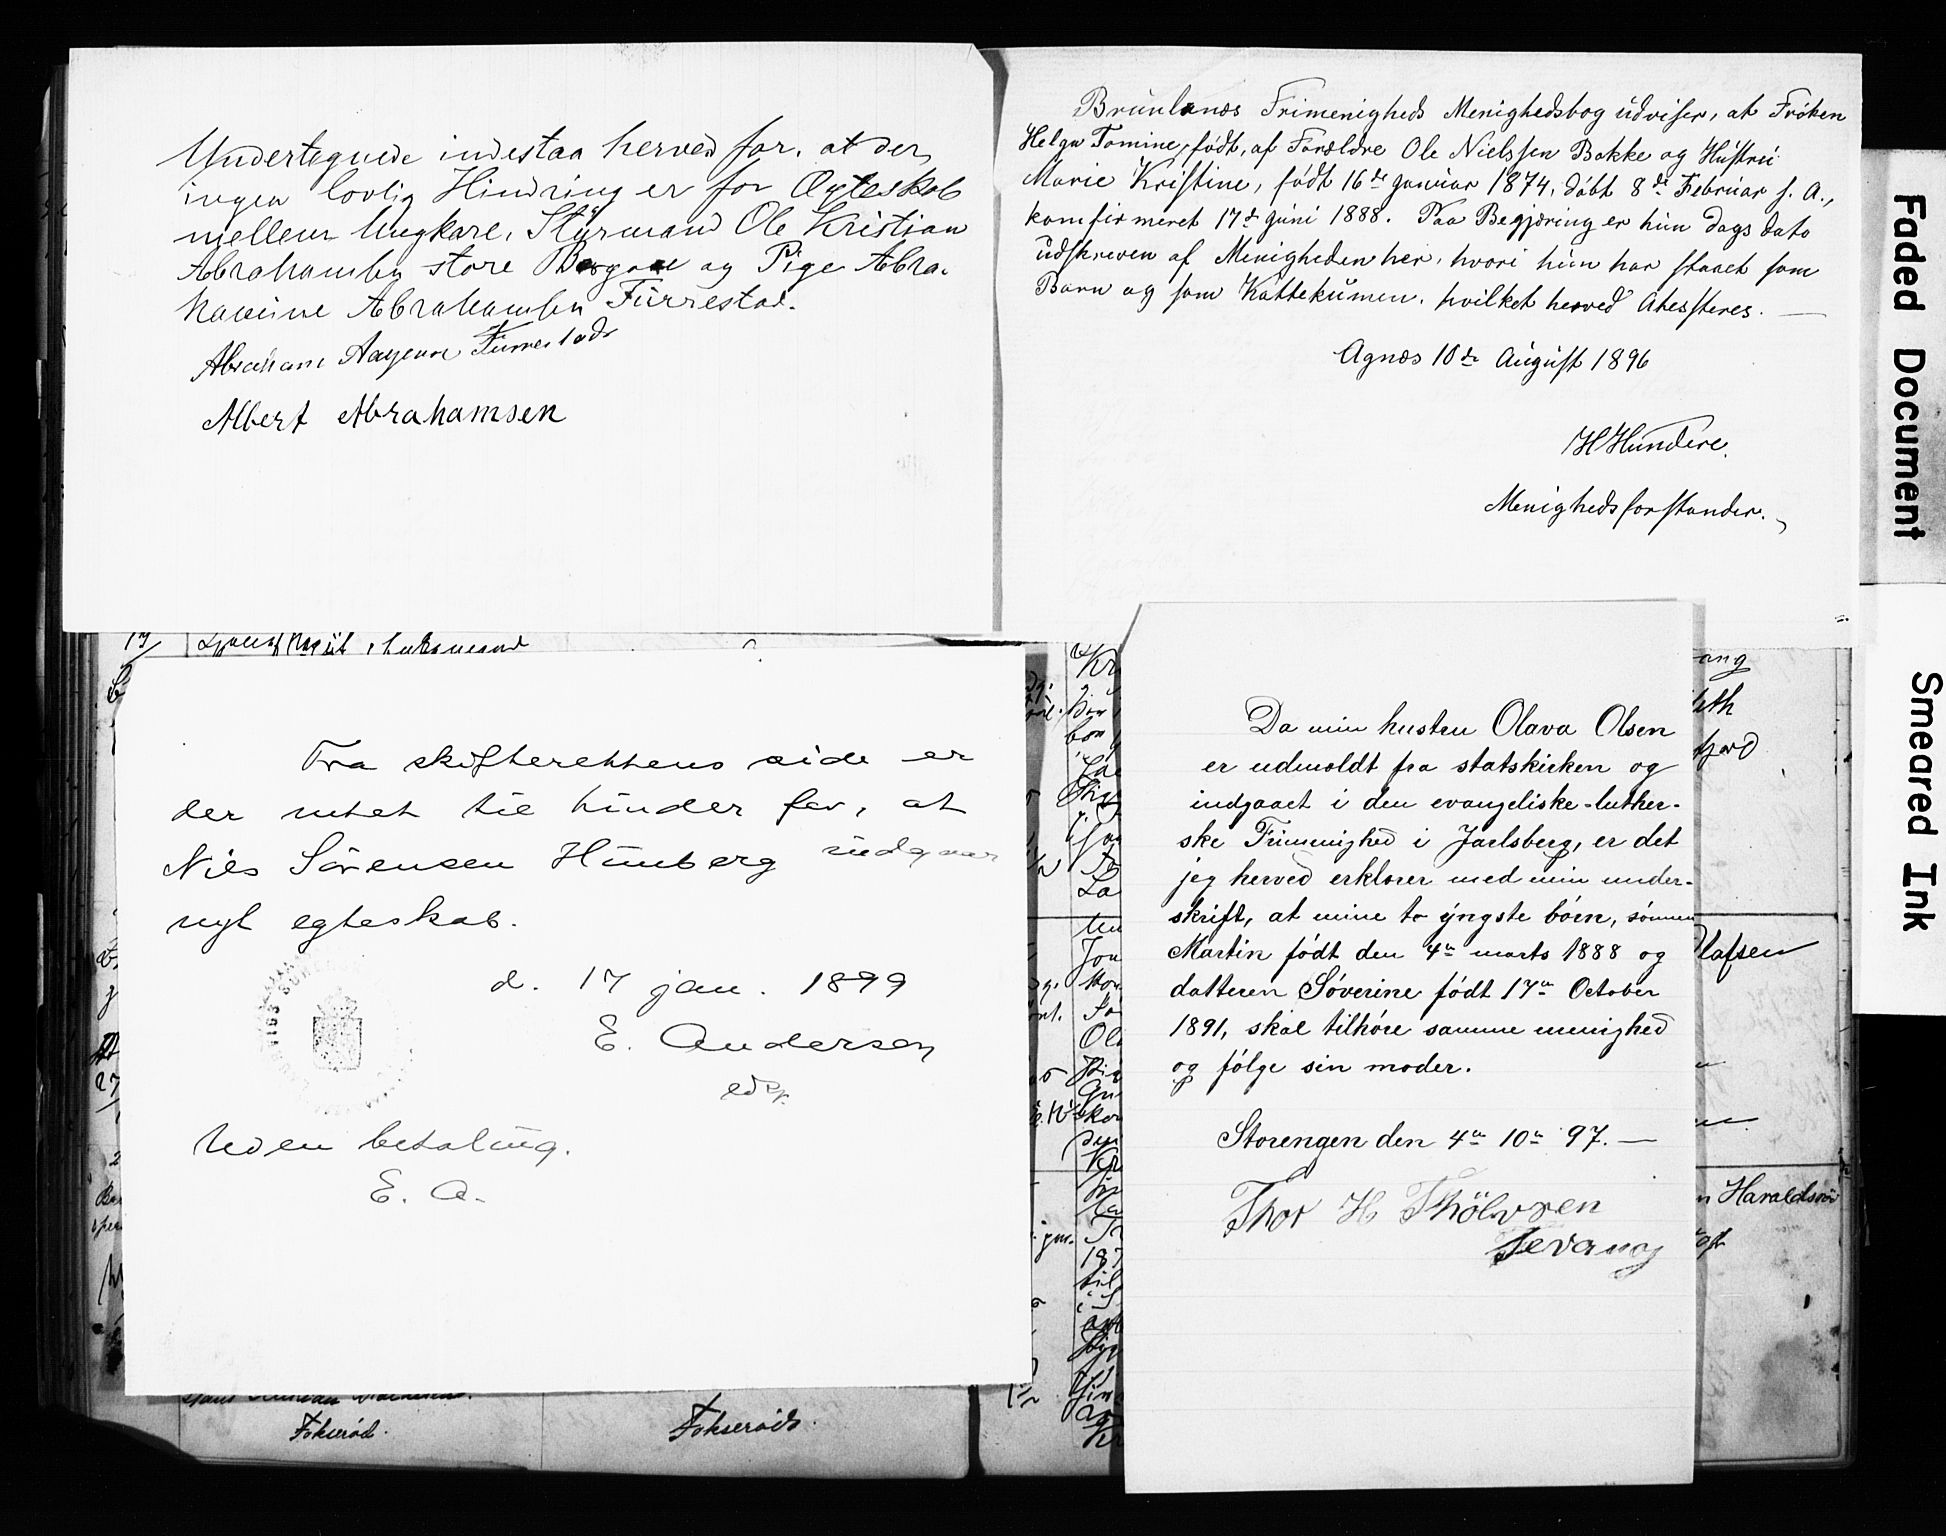 Undertegnede indestaa herved for, at der
ingen lovlig Hindring er for Ægteskab
mellem Ungkarl, Stÿrmand Ole Kristian
Abrahamsen store Bergan og Pige Abra-
hamine Abrahamsen Fürrestad.
Abraham Aagesen Furrestads
Albert Abrahamsen
Brunlanæs Frimenigheds Menighedsbog udviser, at Frøken
Helga Tomine, født, af Forældre Ole Nielssen Bakke og Hustru
Marie Kristine, født 16de Januar 1874, døbt 8de Februar s. A.,
komfirmeret 17de Juni 1888. Paa Begjæring er hun dags dato
udskreven af Menigheden her, hvori hun har staaet som
Barn og som Kattekumen, hvilket herved Atessteres. —
Agnæs 10de August 1896
H Hundere.
Menighedsforstander.
Fra skifterettens side er
der intet til hinder for, at
Niels Sørensen Himberg indgaar
nyt egteskab.
d. 17 jan. 1899
E. Andersen
edsv.
Uden betaling.
E. A.
Da min hustru Olava Olsen
er udmeldt fra statskirken og
indgaaet i den evangeliske-luther-
ske Frimenighed i Jarlsberg, er det
jeg herved erklærer med min under-
skrift, at mine to yngste børn, sønnen
Martin født den 4de marts 1888 og
datteren Søverine født 17de October
1891, skal tilhøre samme menighed
og følge sin moder.
Storengen den 4de 10de 97. —
Thor H Thölvsen
Jevang
Fokserød.
Fokserøds.
Olafsen
Haraldsen
Faded Document
Smeared Ink